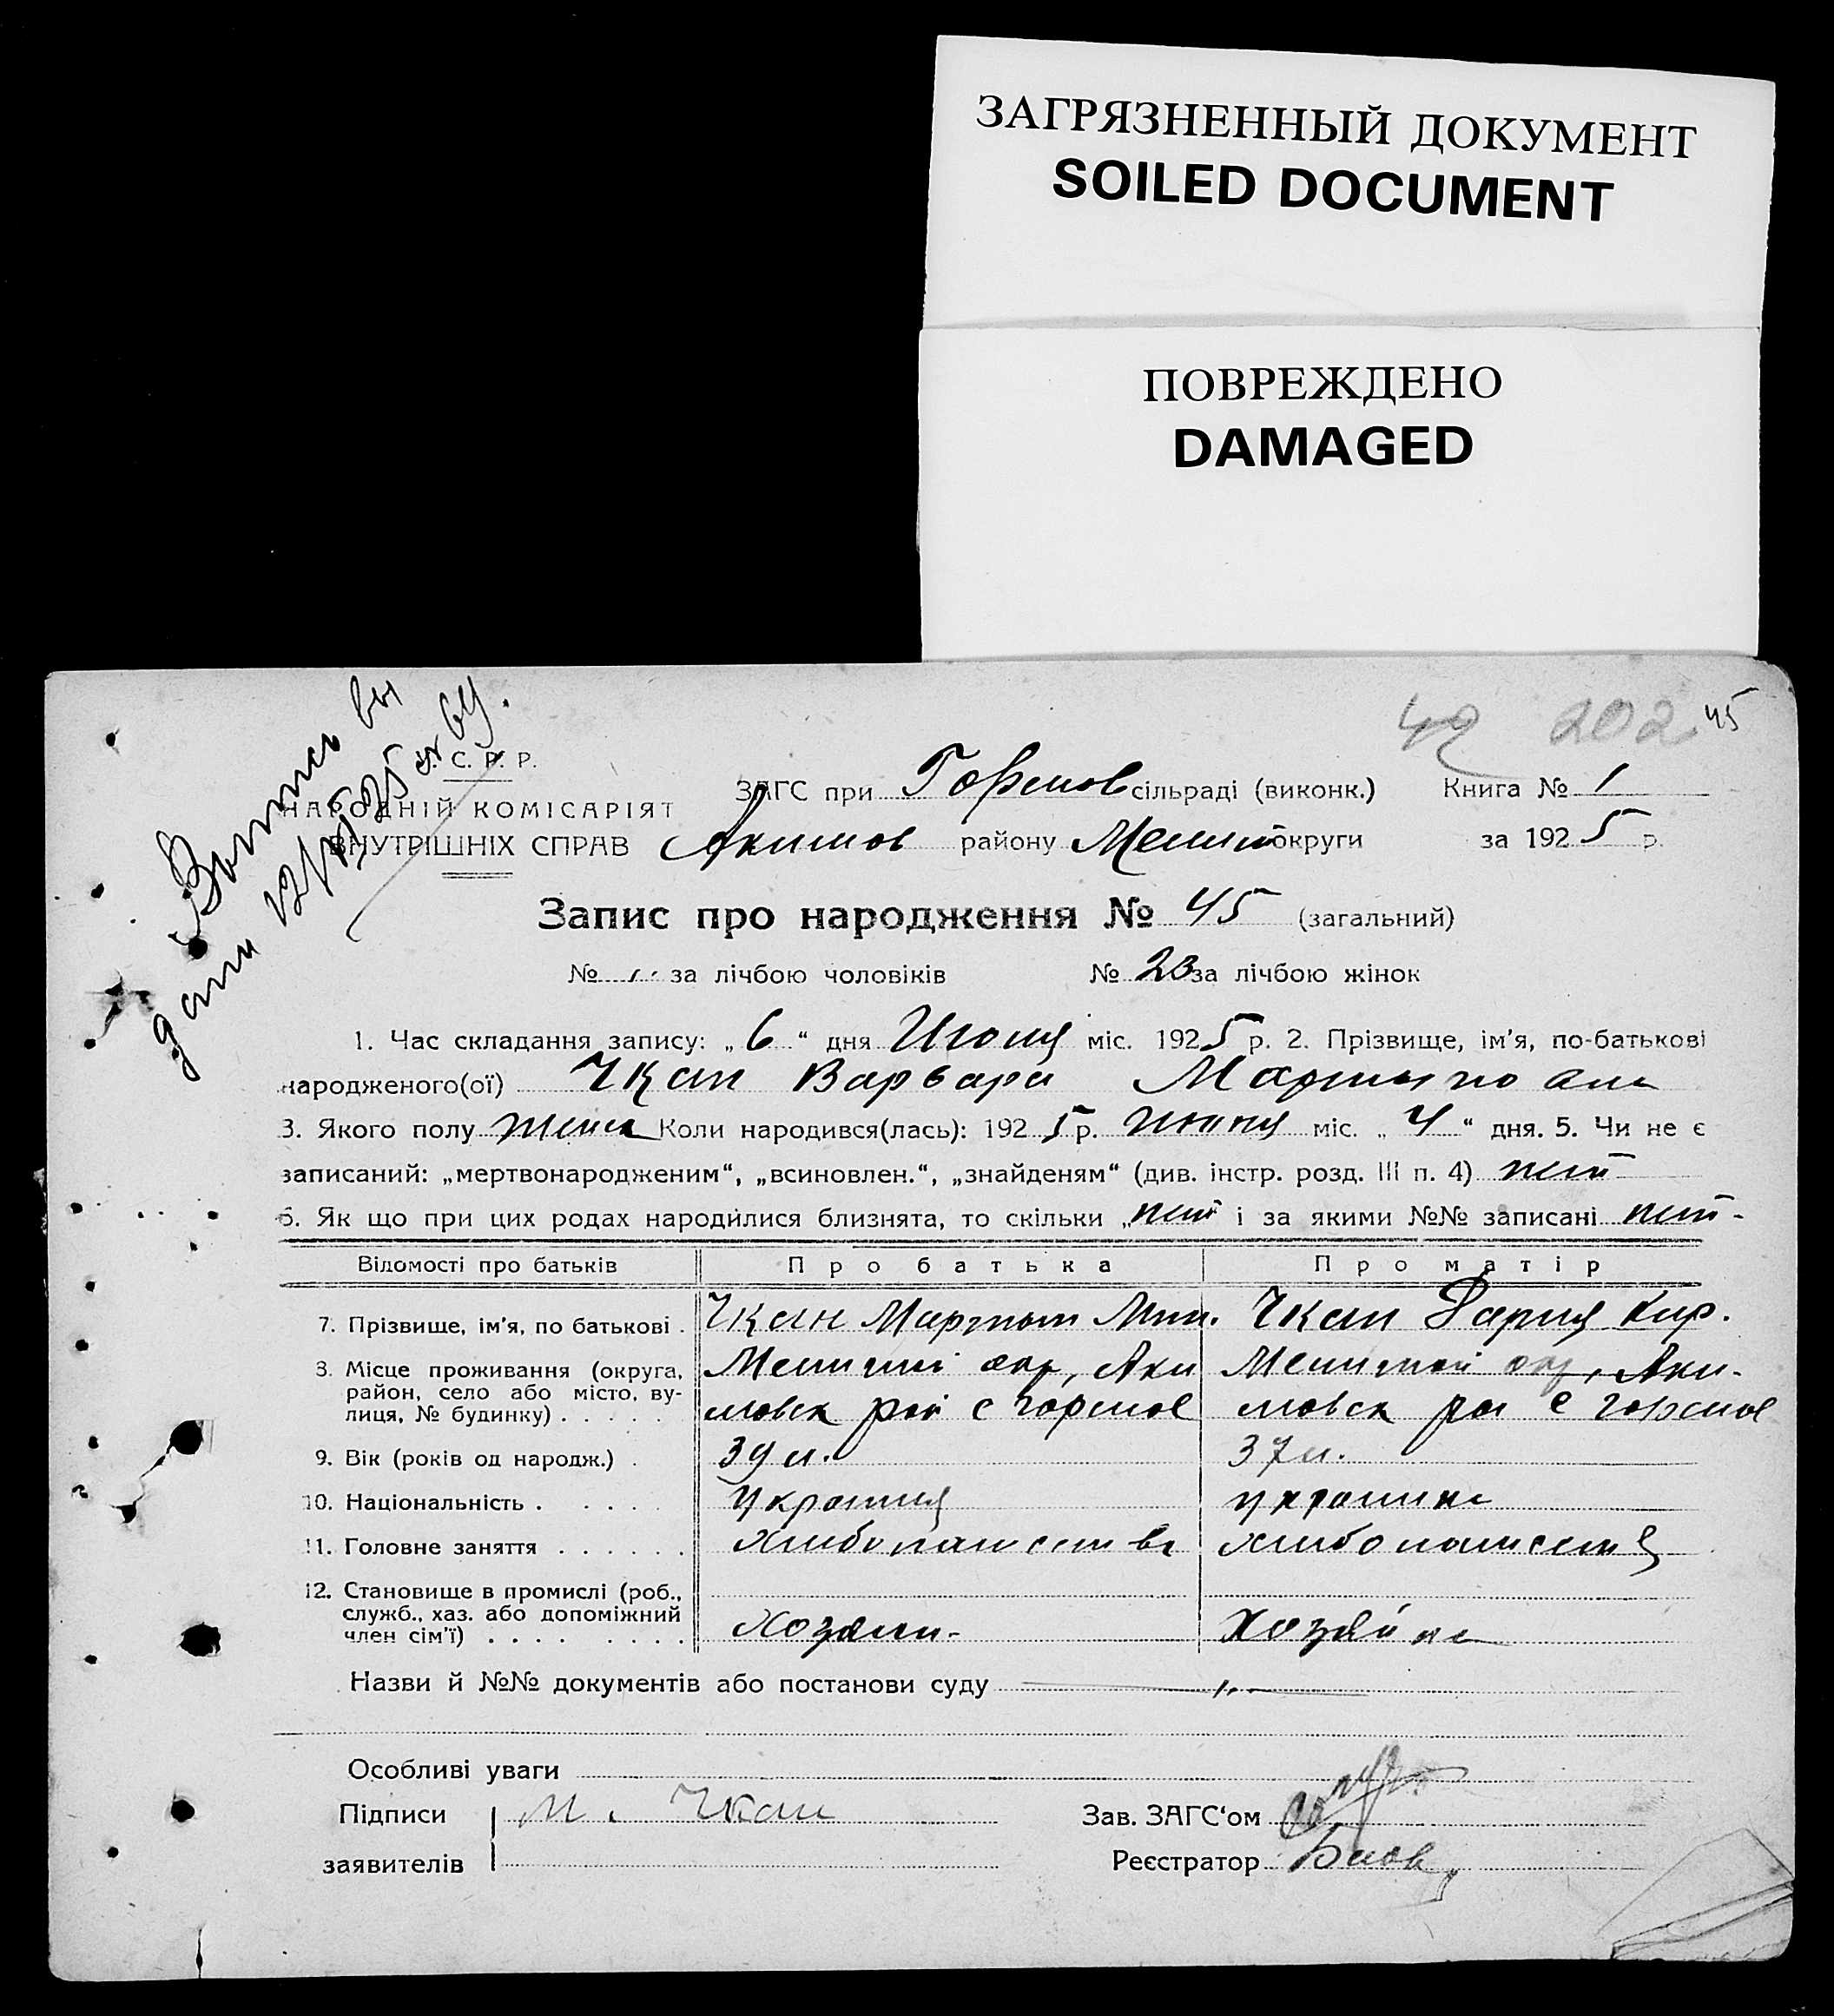 ЗАГРЯЗНЕННЫЙ ДОКУМЕНТ
SOILED DOCUMENT
ПОВРЕЖДЕНО
DAMAGED
202 45
Выпись вы
дана
У. С. Р. Р.
НАРОДНІЙ КОМІСАРІЯТ
ВНУТРІШНІХ СПРАВ
ЗАГС при сільраді (виконк.) Книга № 1
Акимов району Мелит округи за 1925 р.
Запис про народження № 45 (загальний)
№ за лічбою чоловіків № 23 за лічбою жінок
1. Час складання запису: „6“ дня Июня міс. 1925 р. 2. Прізвище, ім'я, по-батькові
народженого(ої) Чкан Варвара Мартыновна
3. Якого полу женск Коли народився(лась): 1925 р. июня міс. „4“ дня. 5. Чи не є
записаний: „мертвонародженим“, „всиновлен.“, „знайденям“ (див. інстр. розд. III п. 4) нет
6. Як що при цих родах народилися близнята, то скільки „нет і за якими №№ записані нет-
Відомості про батьків Про батька Про матір
7. Прізвище, ім'я, по батькові . Чкан Мартын Чкан Дария Кир.
8. Місце проживання (округа, район, село або місто, вулиця, № будинку) . . . . . Мелитой окр, Акимовск рой с Мелитой окр, Акимовск с
9. Вік (років од народж.) . 39 л. 37 л.
10. Національність . . . . . украинц украинка
11. Головне заняття . . . . . . хлибопашество
12. Становище в промислі (роб., служб., хаз. або допоміжний член сім'ї) . . . . . . . . Хозяин- Хозяйка
Назви й №№ документів або постанови суду
Особливі уваги
Підписи М. Чкан Зав. ЗАГС'ом
заявителів Реєстратор